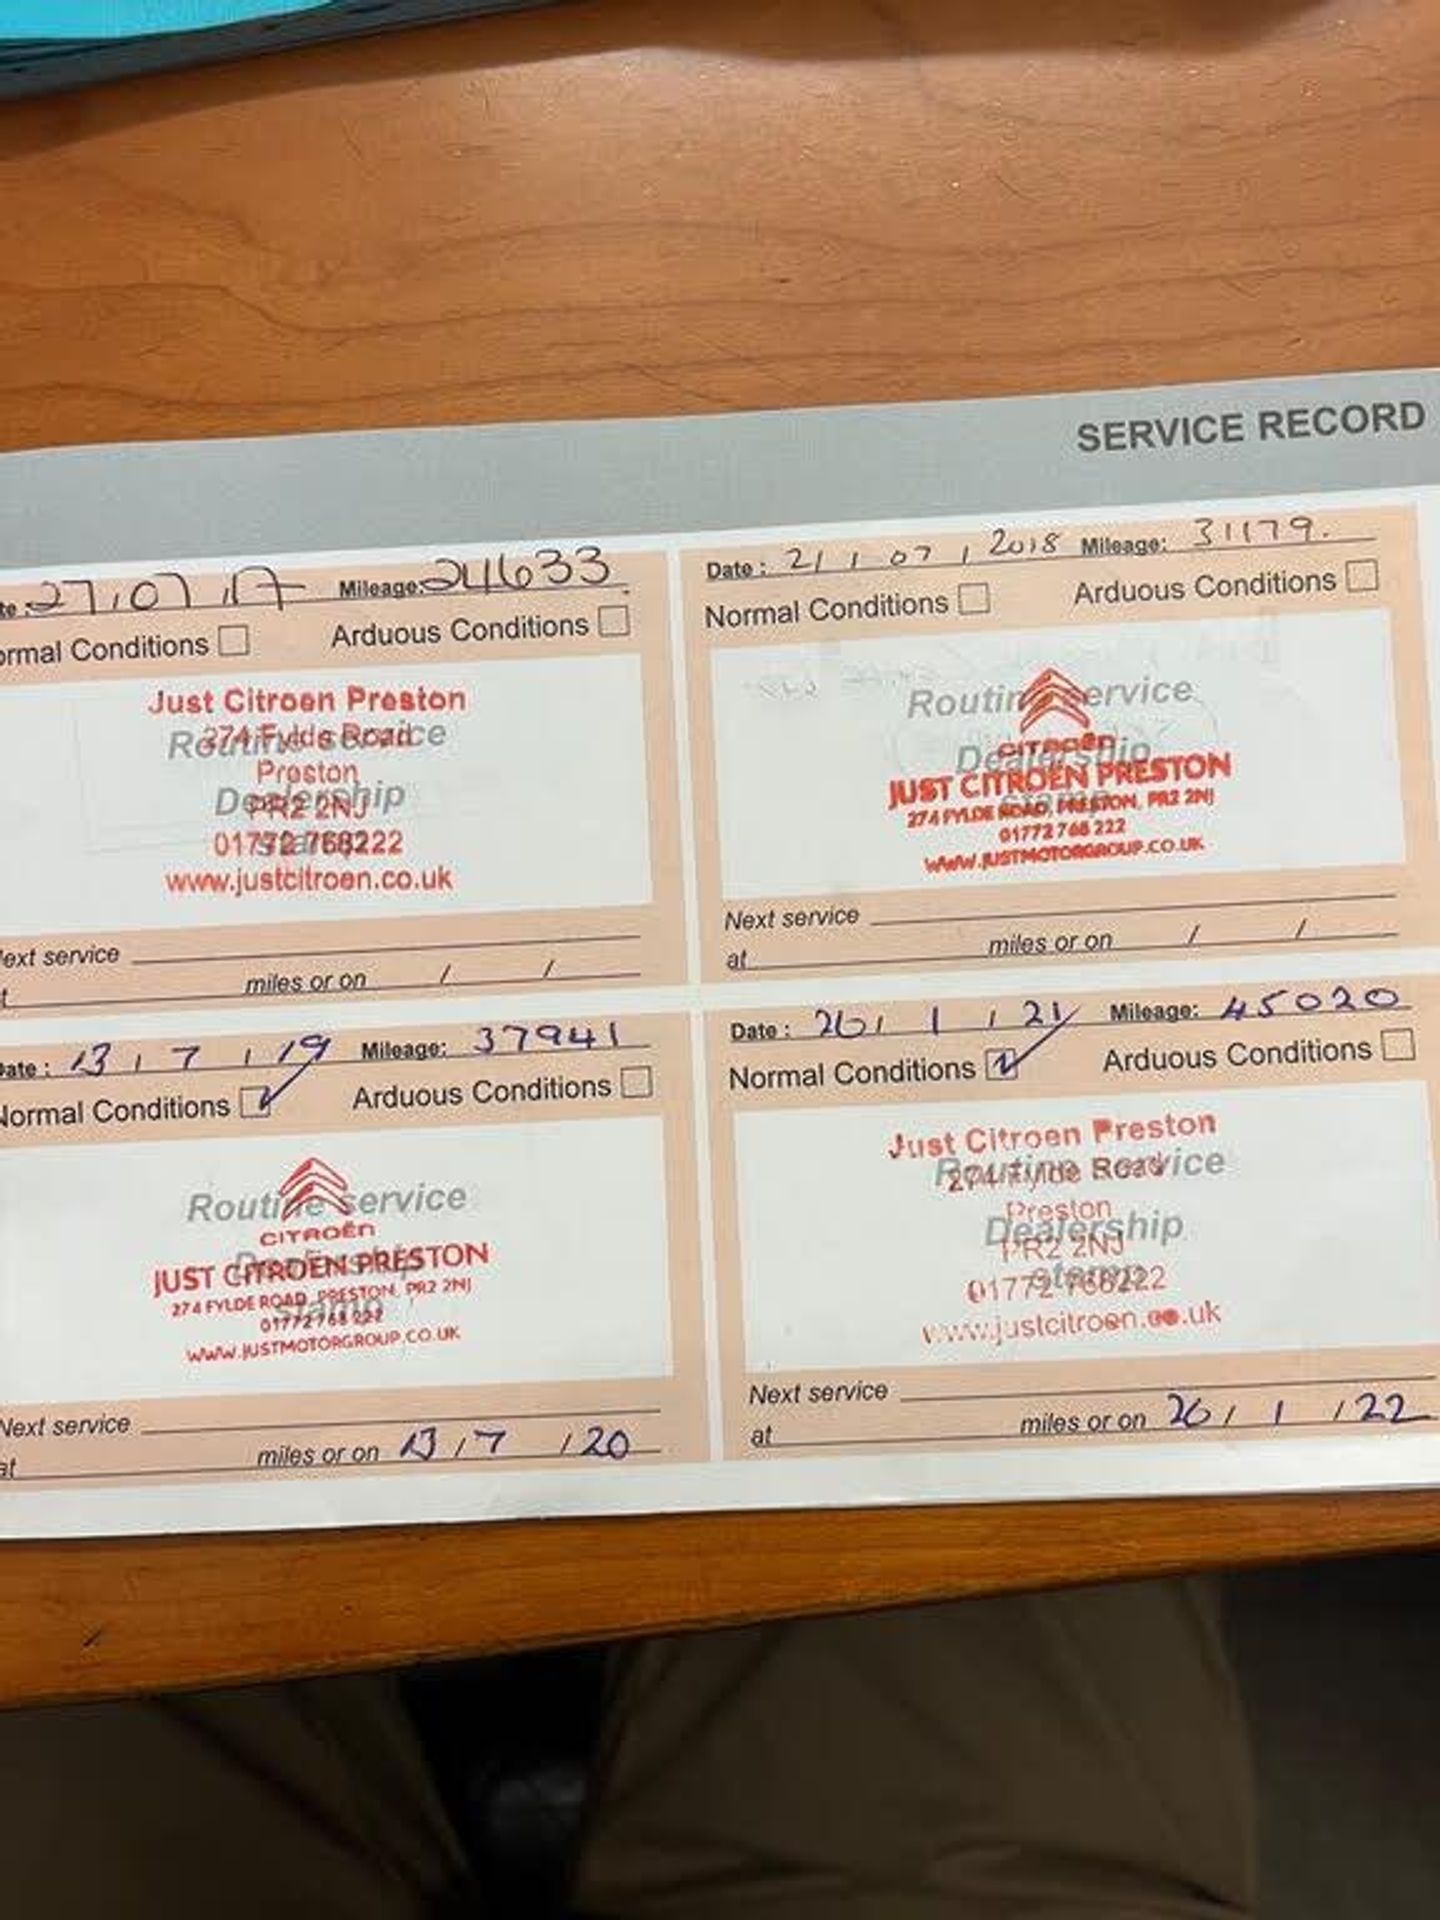 SERVICE RECORD
te : 27 / 07 / 17 Mileage: 24633
ormal Conditions Arduous Conditions
Routine service
Dealership
stamp
Just Citroen Preston
274 Fylde Road
Preston
PR2 2NJ
01772 768222
www.justcitroen.co.uk
Next service
t miles or on / /
Date : 21 / 07 / 2018 Mileage: 31179.
Normal Conditions Arduous Conditions
Routine service
Dealership
stamp
CITROËN
JUST CITROËN PRESTON
274 FYLDE ROAD, PRESTON, PR2 2NJ
01772 768 222
WWW.JUSTMOTORGROUP.CO.UK
Next service
at miles or on / /
Date : 13 / 7 / 19 Mileage: 37941
Normal Conditions Arduous Conditions
Routine service
Dealership
stamp
CITROËN
JUST CITROËN PRESTON
274 FYLDE ROAD, PRESTON, PR2 2NJ
01772 768 222
WWW.JUSTMOTORGROUP.CO.UK
Next service
at miles or on 13 / 7 / 20
Date : 26 / 1 / 21 Mileage: 45020
Normal Conditions Arduous Conditions
Routine service
Dealership
stamp
Just Citroen Preston
274 Fylde Road
Preston
PR2 2NJ
01772 768222
www.justcitroen.co.uk
Next service
at miles or on 26 / 1 / 22